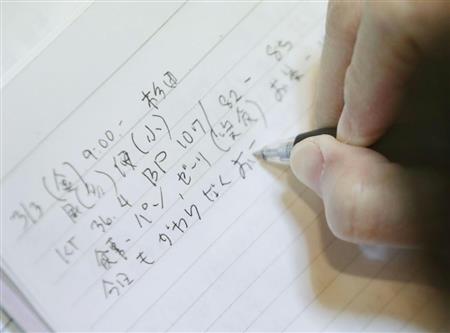 3/3(金) 9:00-
尿(多) 便(小)
KT 36.4 BP 107/82-85
食事- パン、ゼリー(完食) お茶-
今日もかわりなくお